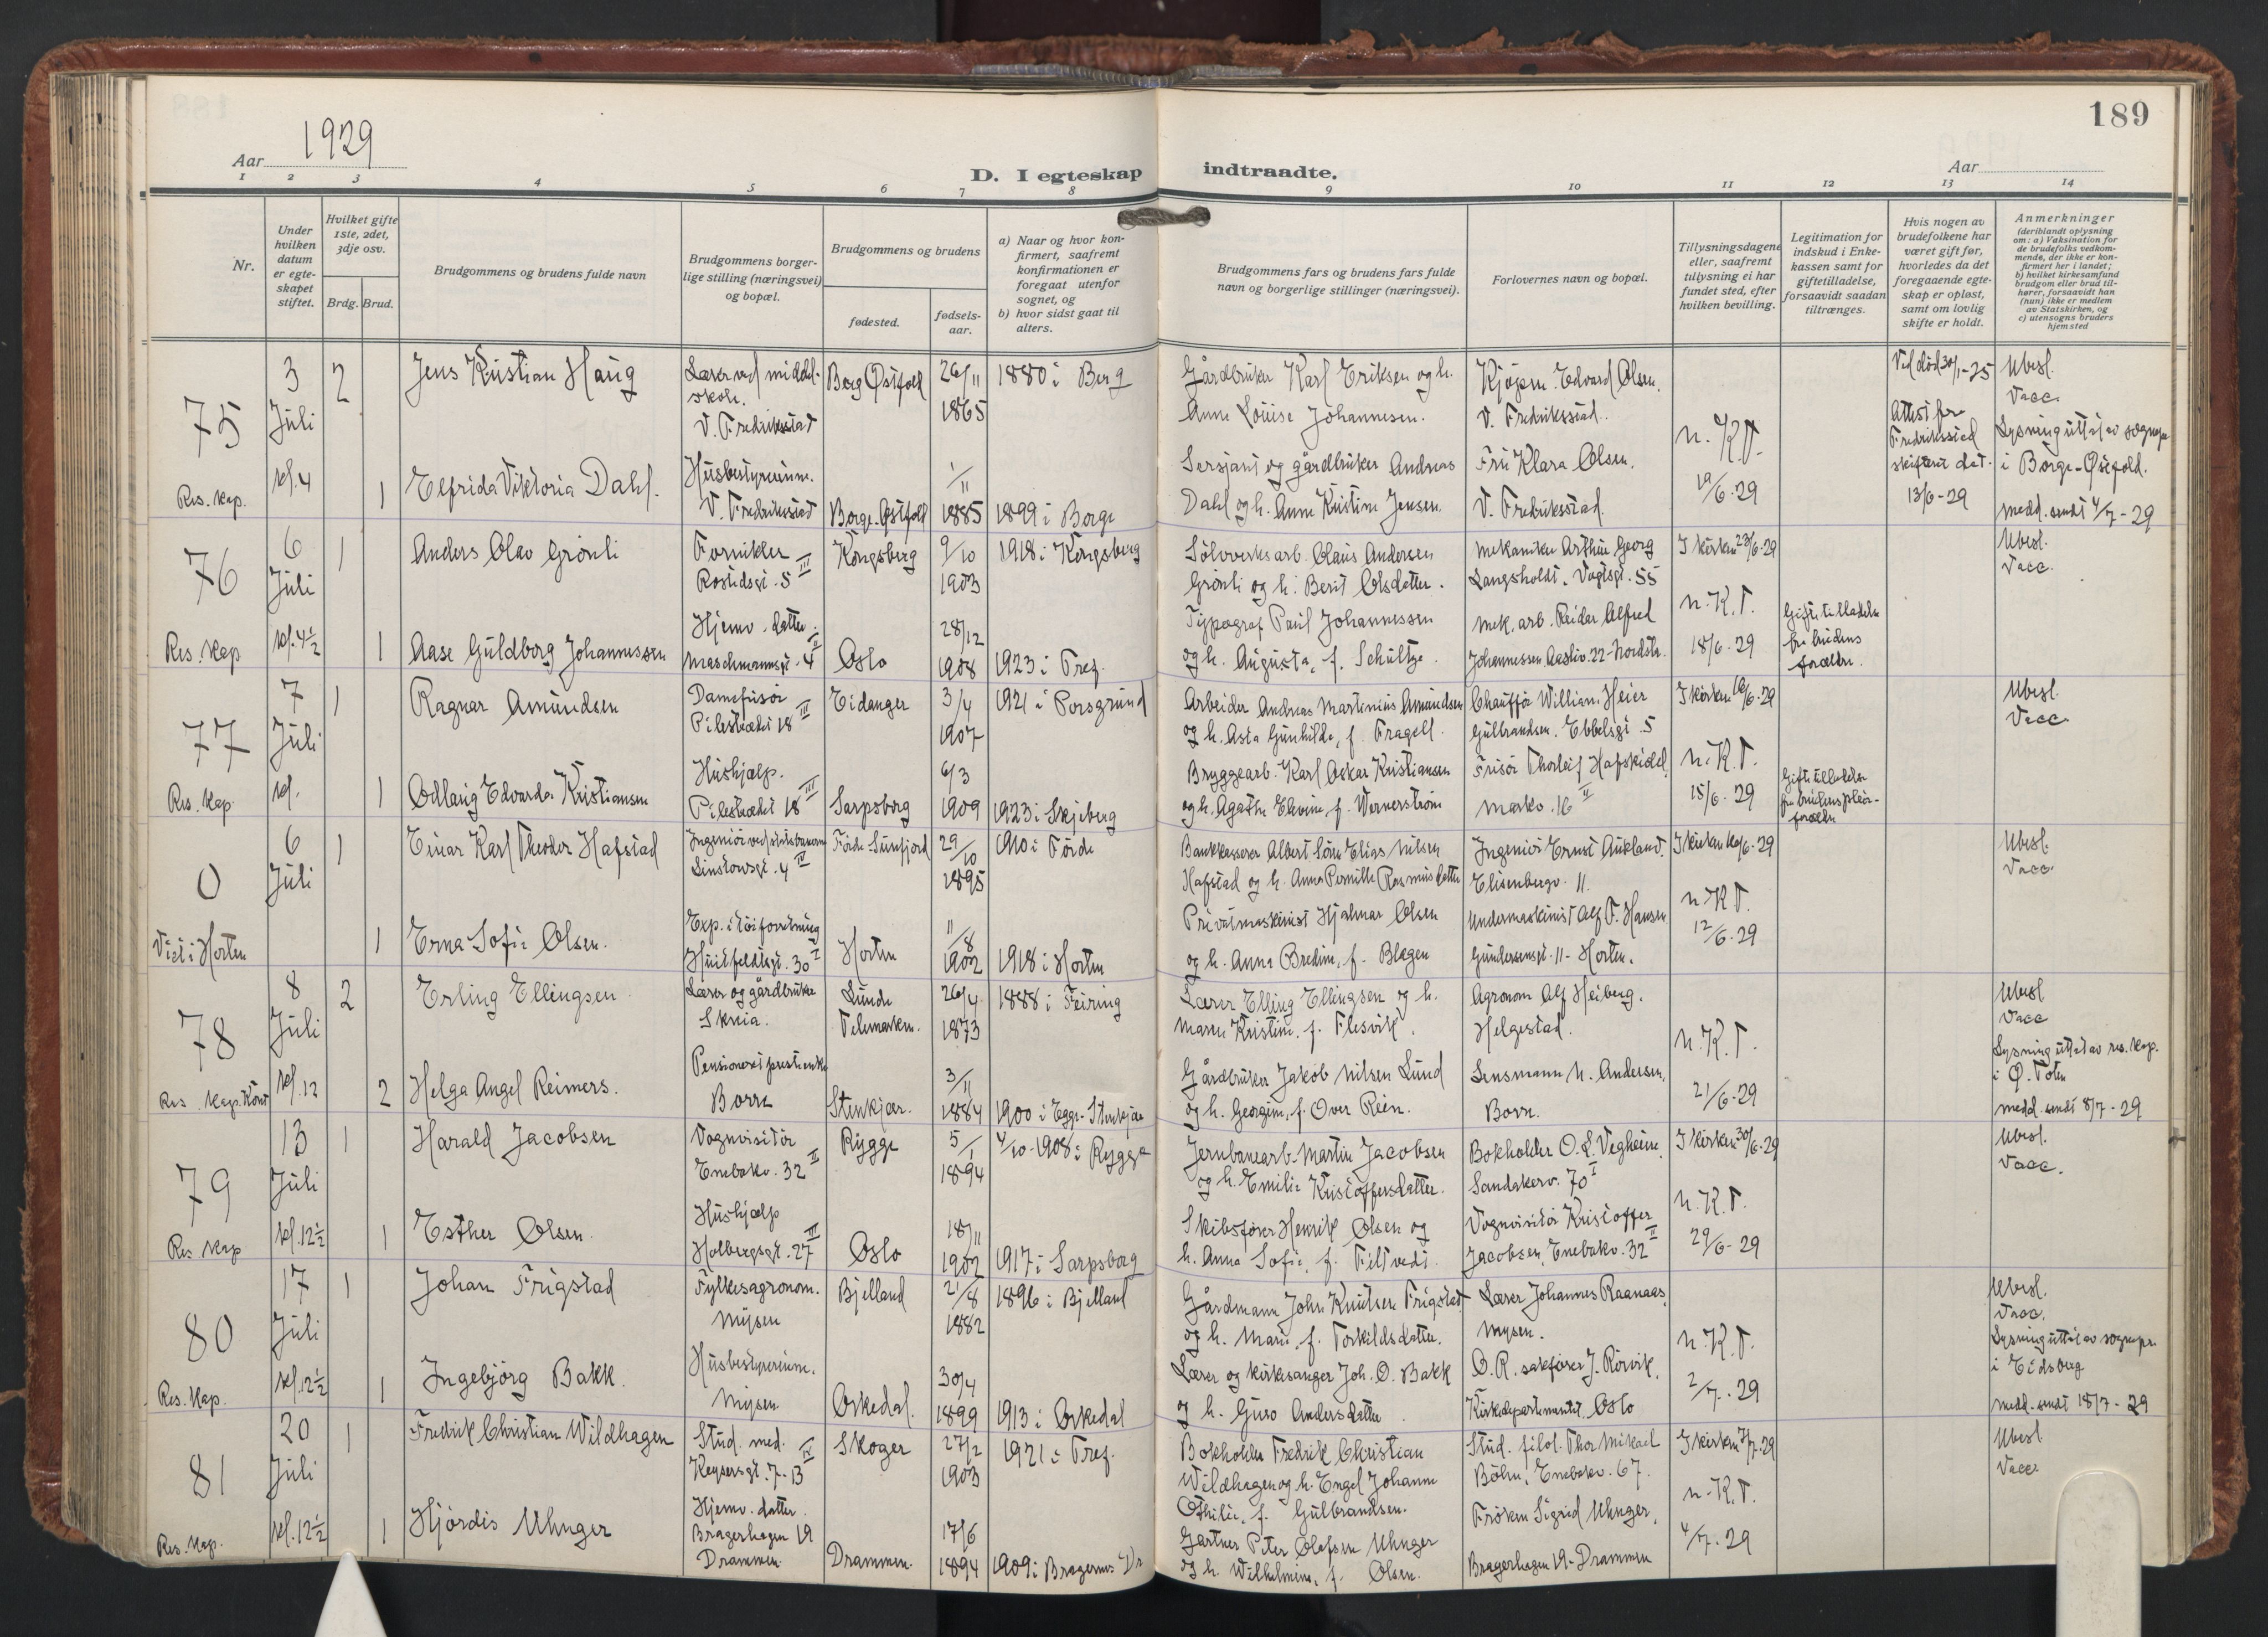 189
Aar 1929
D. I egteskap indtraadte.
Aar
1 2 3 4 5 6 7 8 9 10 11 12 13 14
Nr.
Under hvilken datum er egte-skapet stiftet.
Hvilket gifte 1ste, 2det, 3dje osv.
Brdg. Brud.
Brudgommens og brudens fulde navn
Brudgommens borger-lige stilling (næringsvei) og bopæl.
Brudgommens og brudens
fødested.
fødsels-aar.
a) Naar og hvor kon-firmert, saafremt konfirmationen er foregaat utenfor sognet, og
b) hvor sidst gaat til alters.
Brudgommens fars og brudens fars fulde navn og borgerlige stillinger (næringsvei).
Forlovernes navn og bopæl.
Tillysningsdagene eller, saafremt tillysning ei har fundet sted, efter hvilken bevilling.
Legitimation for indskud i Enke-kassen samt for giftetilladelse, forsaavidt saadan tiltrænges.
Hvis nogen av brudefolkene har været gift før, hvorledes da det foregaaende egte-skap er opløst, samt om lovlig skifte er holdt.
Anmerkninger (deriblandt oplysning om: a) Vaksination for de brudefolks vedkom-mende, der ikke er kon-firmert her i landet; b) hvilket kirkesamfund brudgom eller brud til-hører, forsaavidt han (hun) ikke er medlem av Statskirken, og c) utensogns bruders hjemsted
75
3 Juli kl. 4
Res. kap.
2
Jens Kristian Haug
Lærer ved middel-skole.
V. Fredriksstad
Berg Østfold
26/11 1865
1880 i Berg
Gårdbruker Karl Eriksen og h.
Anne Louise Johannesen.
Kjøpm. Edvard Olsen.
V. Fredriksstad.
n. K. T.
19/6-29
Ved død 30/1-25
Attest fra Fredriksstad skifterett dat. 13/6-29
Ubesl.
Vacc.
Lysning uttat av sognepr. i Borge-Østfold.
medd. sendt 4/7-29
1
Elfrida Viktoria Dahl.
Husbestyrerinne.
V. Fredriksstad
Borge-Østfold
1/11 1885
1899 i Borge
Sersjant og gårdbruker Andreas
Dahl og h. Anne Kristine Jensen.
Fru Klara Olsen.
V. Fredriksstad.
76
6 Juli kl. 4½
Res. kap
1
Anders Olav Grønli
Fornikler
Rostedsgt. 5 III
Kongsberg
9/10 1903
1918 i Kongsberg
Sølvverksarb. Olaus Andersen
Grønli og h. Berit Olsdatter.
Mekaniker Arthur Georg
Langsholdt. Vogtsgt. 55
I kirken 23/6-29
n. K. T.
18/6-29
Ubesl.
Vacc.
1
Aase Guldborg Johannessen
Hjemv. datter.
Maschmannsgt. 4 II
Oslo
28/12 1908
1923 i Tref.
Typograf Paul Johannessen
og h. Augusta, f. Schultze.
Mek. arb. Reidar Alfred
Johannessen Aasliv. 22-Nordstr.
Gifte tilladelse fra brudens forældre.
77
7 Juli kl.
Res. kap.
1
Ragnar Amundsen
Damefrisør
Pilestrædet 18 III
Eidanger
3/4 1907
1921 i Porsgrund
Arbeider Andreas Martinius Amundsen
og h. Asta Gunhilde, f. Fragell.
Chauffør William Heier
Gulbrandsen. Ebbelsgt. 5
I kirken 16/6-29
n. K. T.
15/6-29
Ubesl.
Vacc.
1
Odlaug Edvarda Kristiansen
Hushjælp.
Pilestrædet 18 III
Sarpsborg
6/3 1909
1923 i Skjeberg
Bryggearb. Karl Oskar Kristiansen
og h. Agathe Elevine, f. Wernerström
Frisør Thorleif Hafskidel
Markv. 16 II
Gifte tilladelse fra brudens pleie-forældre
0
6 Juli
Viet i Horten
1
Einar Karl Theodor Hafstad
Ingeniør ved statsbanerne
Linstowsgt. 4 IV
Førde Sunnfjord
29/10 1895
1910 i Førde
Bankkasserer Albert Sône Elias Nilsen
Hafstad og h. Anna Pernille Rasmusdatter
Ingeniør Ernst Aukland.
Elisenbergv. 11.
I kirken 16/6-29
n. K. T.
12/6-29
Ubesl.
Vacc.
1
Erna Sofie Olsen.
Exp. i tøiforretning
Huitfeldtsgt. 30 I
Horten
11/8 1902
1918 i Horten
Privatmaskinist Hjalmar Olsen
og h. Anna Bredine, f. Blegen
Undermaskinist Alf T. Hansen
Gundersensgt. 11 - Horten.
78
8 Juli kl. 12
Res. kap. Kont.
2
Erling Ellingsen
Lærer og gårdbruker
Skreia.
Lunde Telemarken.
26/4 1873
1888 i Feiring
Lærer Elling Ellingsen og h.
Maren Kristine. f. Flesvik.
Agronom Alf Heiberg.
Helgestad.
n. K. T.
21/6-29
Ubesl.
Vacc
Lysning uttat av res. kap. i Ø. Toten
medd. sendt 8/7-29
2
Helga Angel Reimers.
Pensionert prestenke
Borre
Stenkjær.
3/11 1884
1900 i Egge-Stenkjær
Gårdbruker Jakob Nilsen Lund
og h. Georgine, f. Over Rein.
Lensmann N. Andersen,
Borre.
79
13 Juli kl. 12½
Res. kap
1
Harald Jacobsen
Vognvisitør
Enebakv. 32 II
Rygge
5/1 1894
4/10-1908 i Rygge
Jernbanearb. Martin Jacobsen
og h. Emilie Kristoffersdatter.
Bokholder O. L. Vegheim.
Sandakerv. 70 I
I kirken 30/6-29
n. K. T.
29/6-29
Ubesl.
Vacc.
1
Esther Olsen.
Hushjælp
Holbergsgt. 27 III
Oslo
18/11 1902
1917 i Sarpsborg
Skibsfører Henrik Olsen og
h. Anna Sofie, f. Filtvedt.
Vognvisitør Kristoffer
Jacobsen, Enebakv. 32 II
80
17 Juli kl. 12½
Res. kap.
1
Johan Frigstad
Fylkesagronom.
Mysen
Bjelland
21/8 1882
1896 i Bjelland
Gårdmann John Knutsen Frigstad
og h. Marie, f. Torkildsdatter.
Lærer Johannes Raanaas.
Mysen.
n. K. T.
2/7-29
Ubesl.
Vacc.
Lysning uttat av sognepr. i Eidsberg
medd. sendt 18/7-29
1
Ingebjørg Bakk.
Husbestyrerinne.
Mysen
Orkedal.
30/4 1899
1913 i Orkedal
Lærer og kirkesanger Joh. O. Bakk
og h. Guro Andersdatter.
O. R. sakfører J. Rørvik.
Kirkedepartementet. Oslo
81
20 Juli kl. 12½
Res. kap.
1
Fredrik Christian Wildhagen
Stud. med.
Keysersgt. 7-B IV
Skoger
27/2 1903
1921 i Tref.
Bokholder Fredrik Christian
Wildhagen og h. Engel Johanne
Othilie, f. Gulbrandsen.
Stud. filol. Thor Mikael
Bøhn, Enebakv. 67.
I kirken 7/7-29
n. K. T.
4/7-29
Ubesl.
Vacc.
1
Hjørdis Uhnger
Hjemv. datter.
Bragerhagen 19
Drammen.
Drammen.
17/6 1894
1909 i Bragernes Dr
Gartner Peter Olafsen Uhnger
og h. Wilhelmine, f. Olsen.
Frøken Sigrid Uhnger,
Bragerhagen 19-Drammen